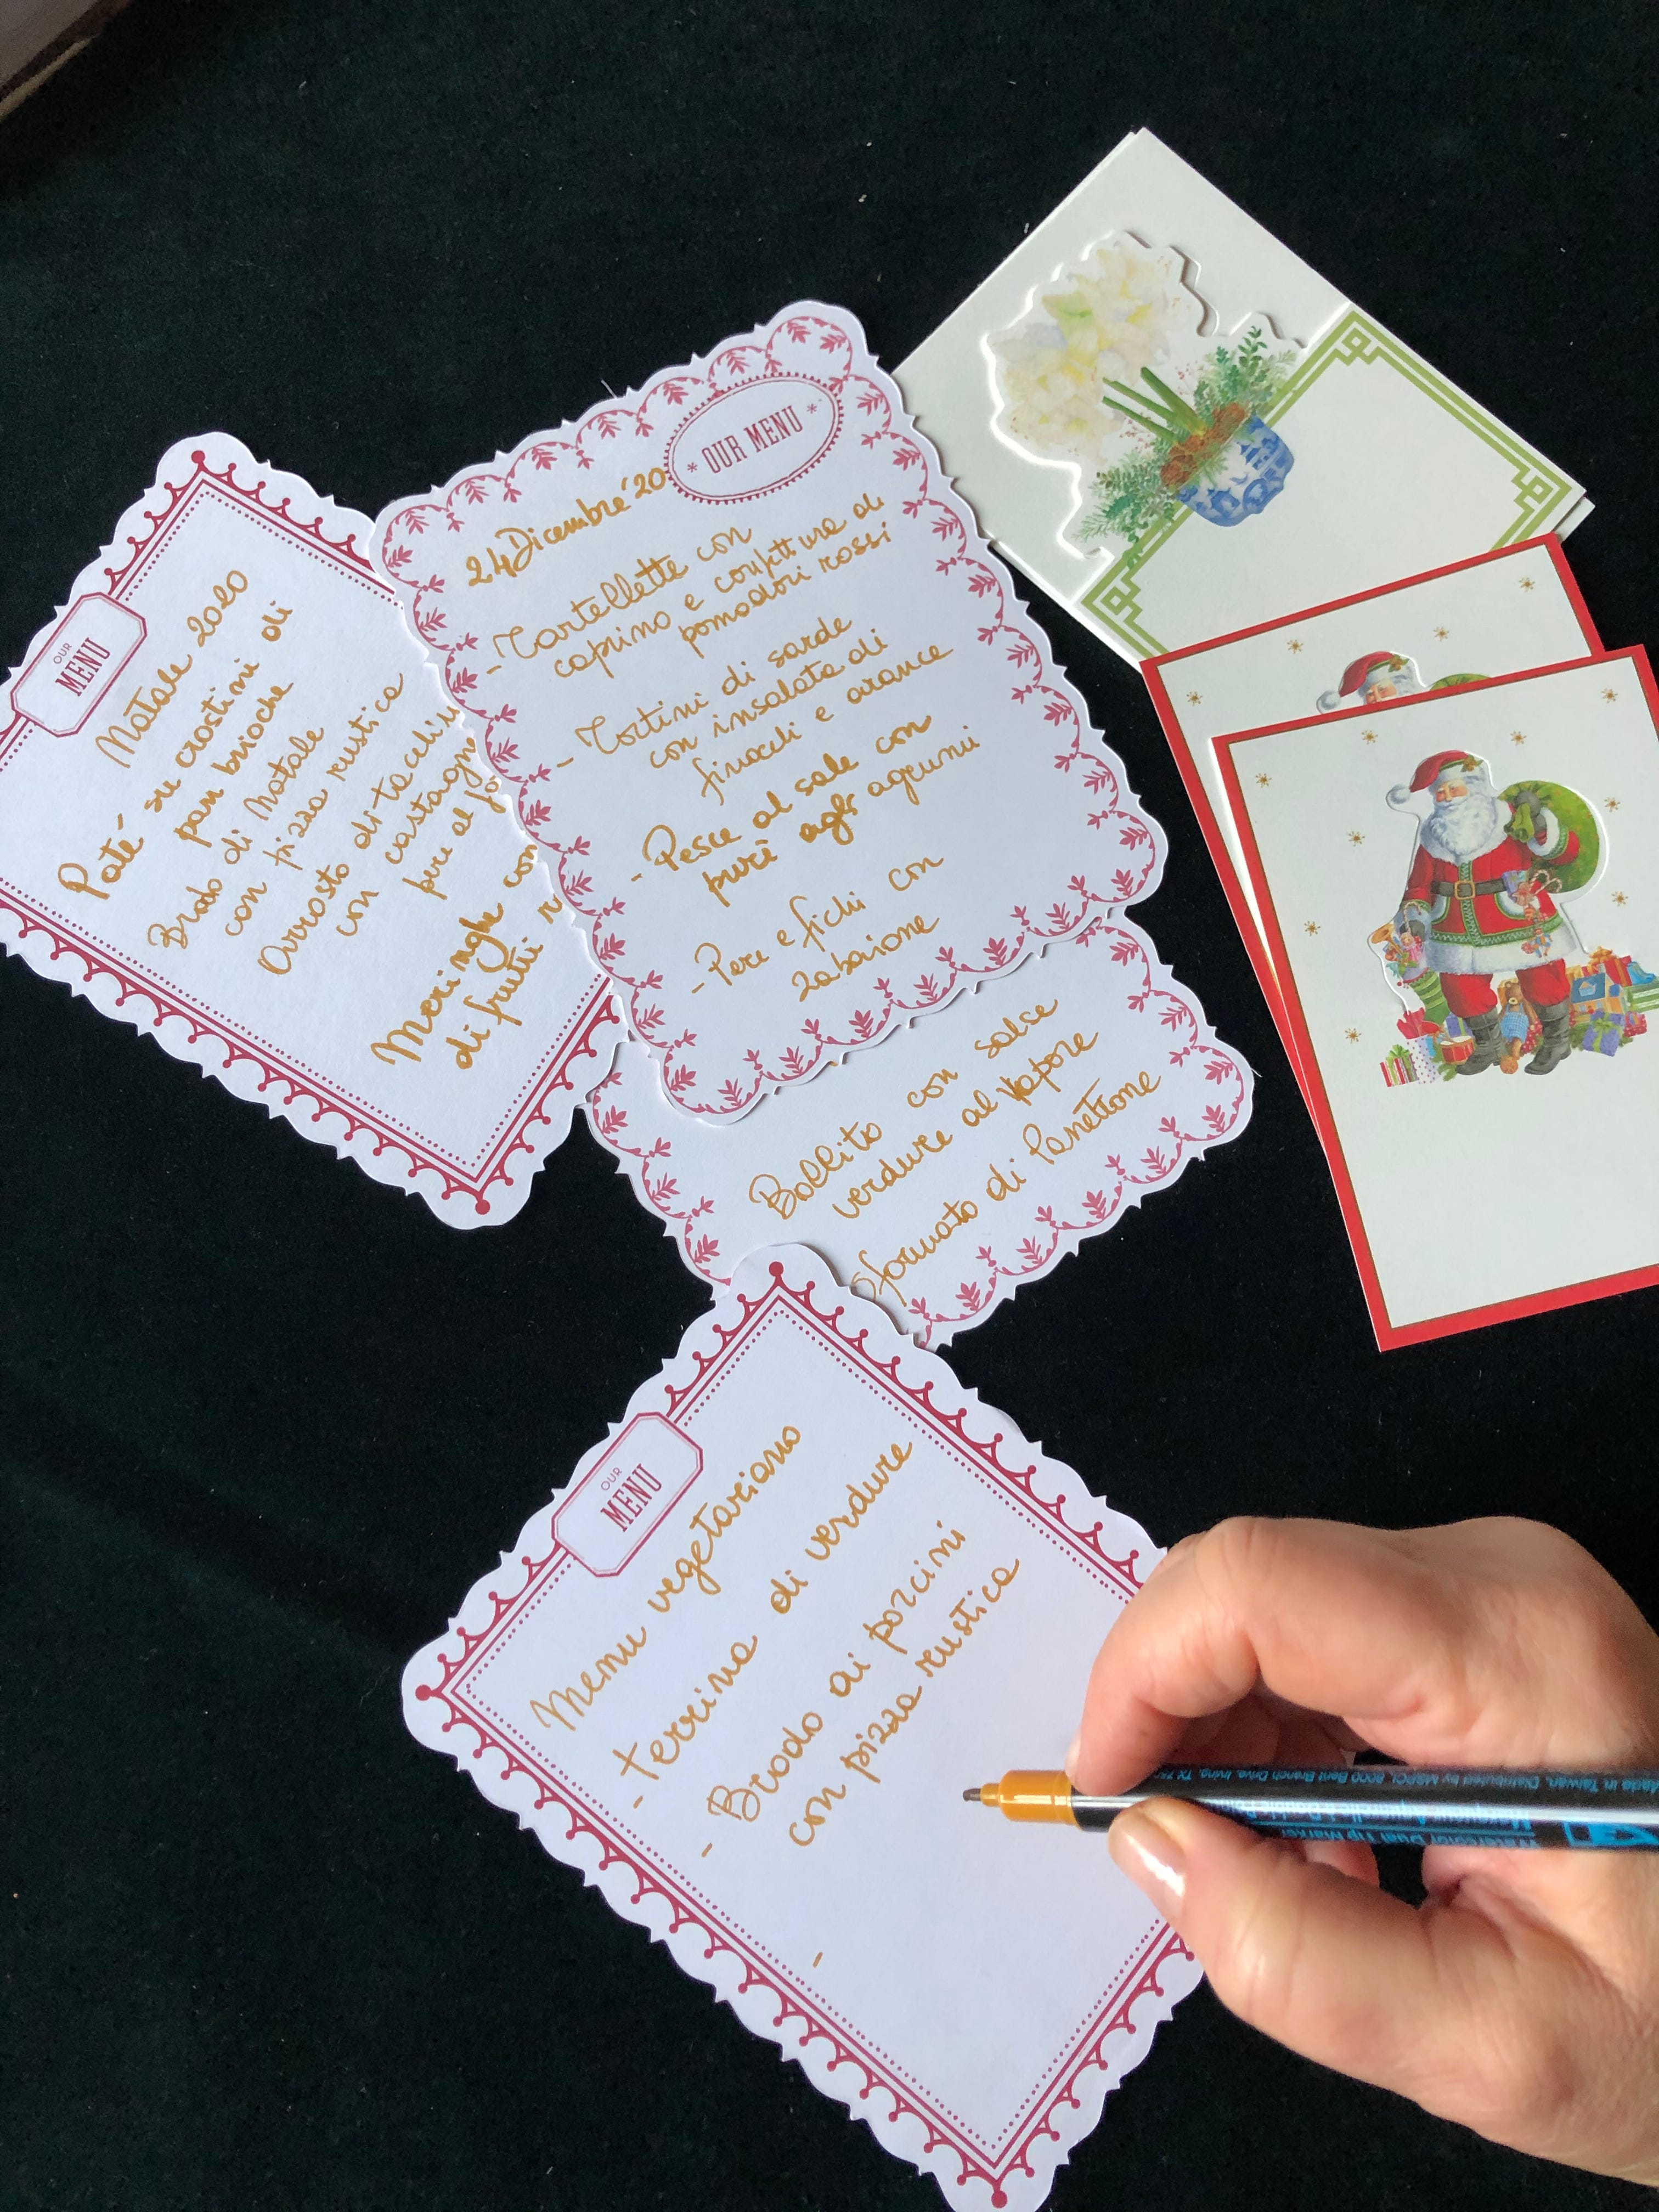 OUR
MENU
Natale 2020
Patè su crostini di
pan brioche
Brodo di Natale
con pizza rustica
Arrosto di
con castagne
pere al
Meringhe con
di frutti
* OUR MENU *
24 Dicembre '20
- Tartellette con
caprino e confettura di
pomodori rossi
- Tortini di sarde
con insalata di
finocchi e arance
- Pesce al sale con
purè agli agrumi
- Pere e fichi con
zabaione
Bollito con salse
verdure al vapore
Sformato di Panettone
OUR
MENU
Menu vegetariano
- terrina di verdure
- Brodo ai porcini
con pizza rustica
-
Made in Taiwan, Distributed by
Dual Tip Marker